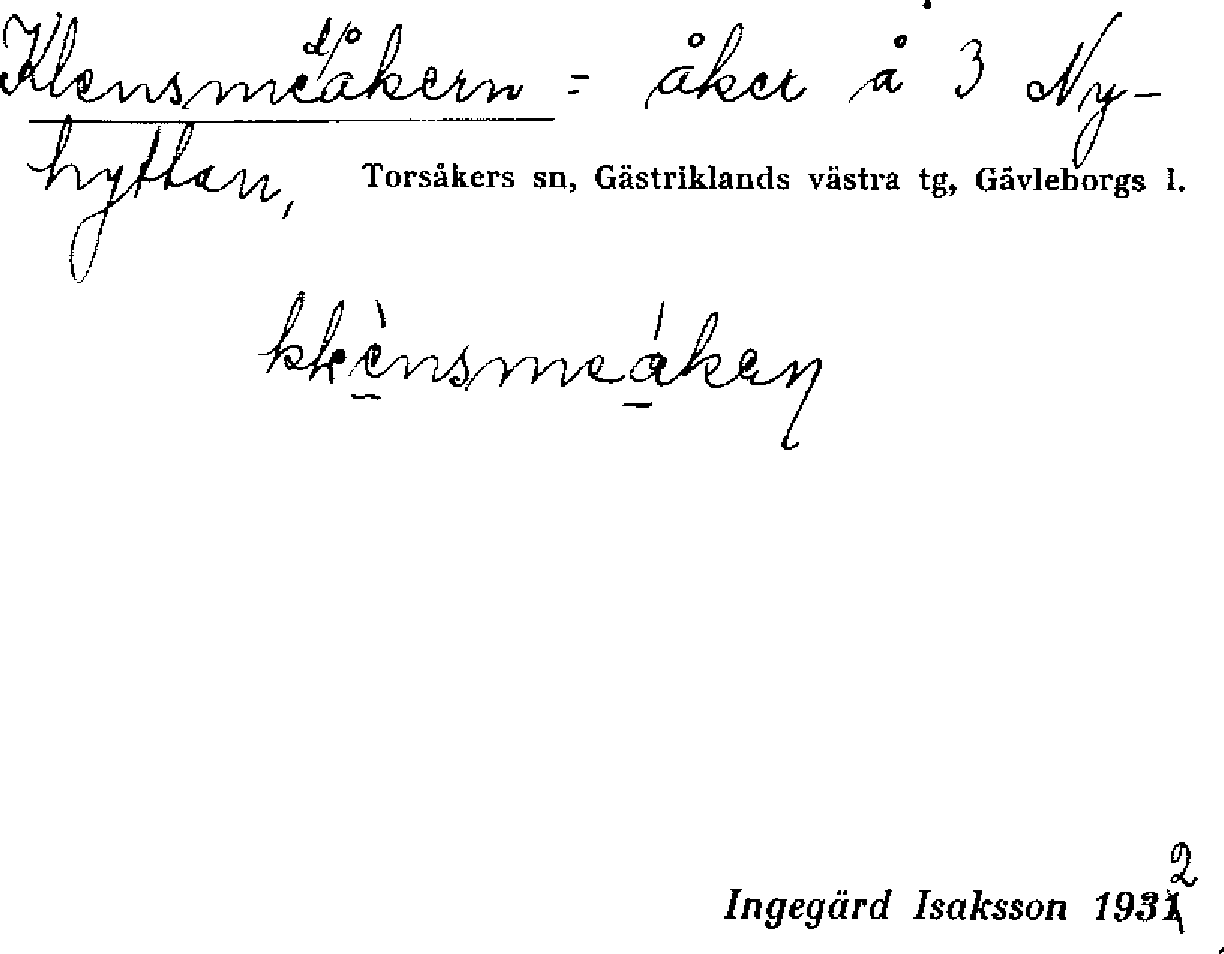 Klensmedåkern = åker å 3 Ny-
hyttan, Torsåkers sn, Gästriklands västra tg, Gävleborgs l.
klènsmeåkaṇ
Ingegärd Isaksson 1932